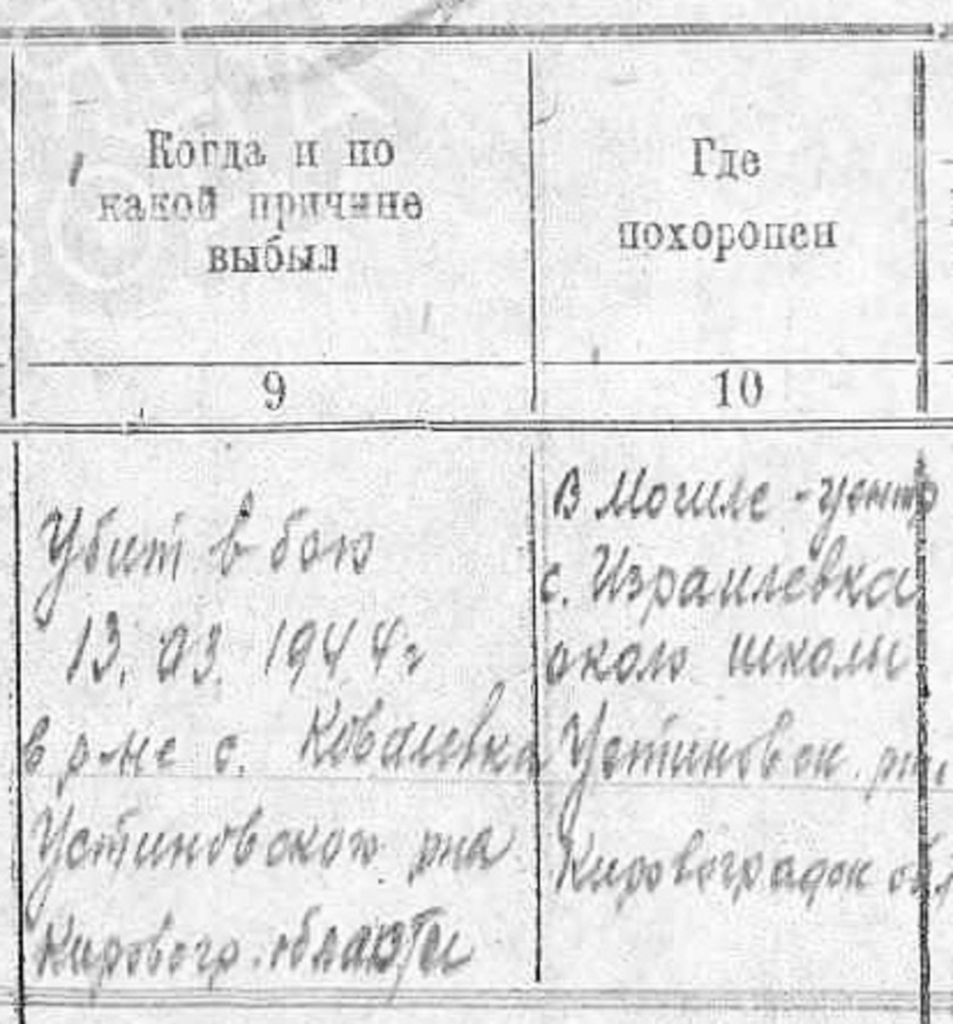 Когда и по
какой причине
выбыл
Где
похоронен
9
10
Убит в бою
13.03.1944г
в р-не с. Ковалевка
Устиновского рна
Кировогр. области
В Могиле - центр
с. Израилевка
около школы
Устиновск. рна
Кировоградск обл